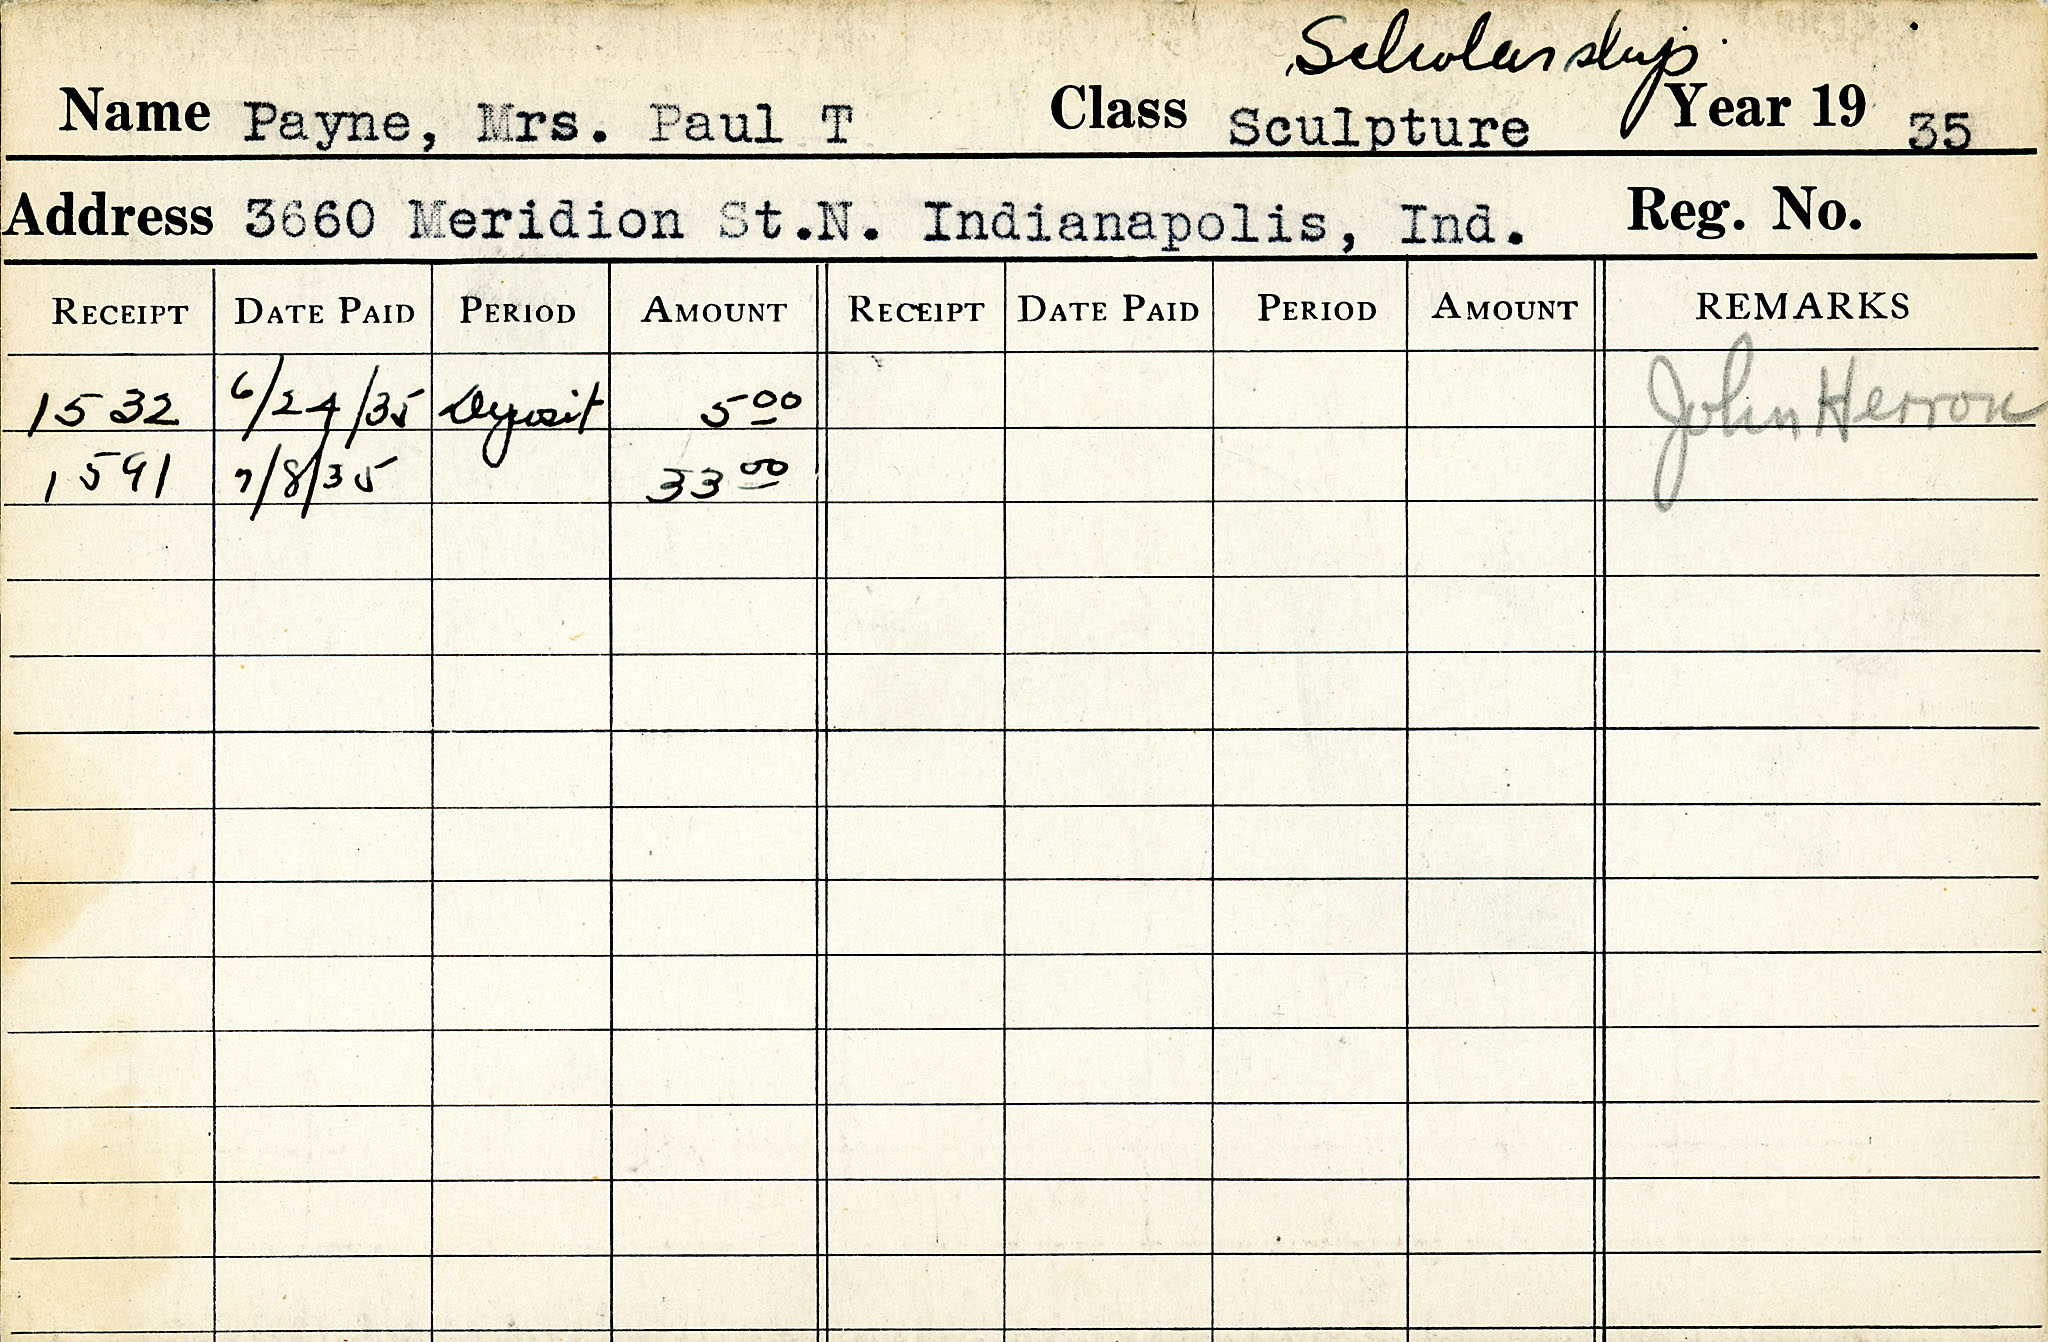 Scholarship
Name Payne, Mrs. Paul T Class Sculpture Year 19 35
Address 3660 Meridion St.N. Indianapolis, Ind. Reg. No.
RECEIPT DATE PAID PERIOD AMOUNT RECEIPT DATE PAID PERIOD AMOUNT REMARKS
1532 6/24/35 Deposit 5 00 John Herron
1591 7/8/35 33 00